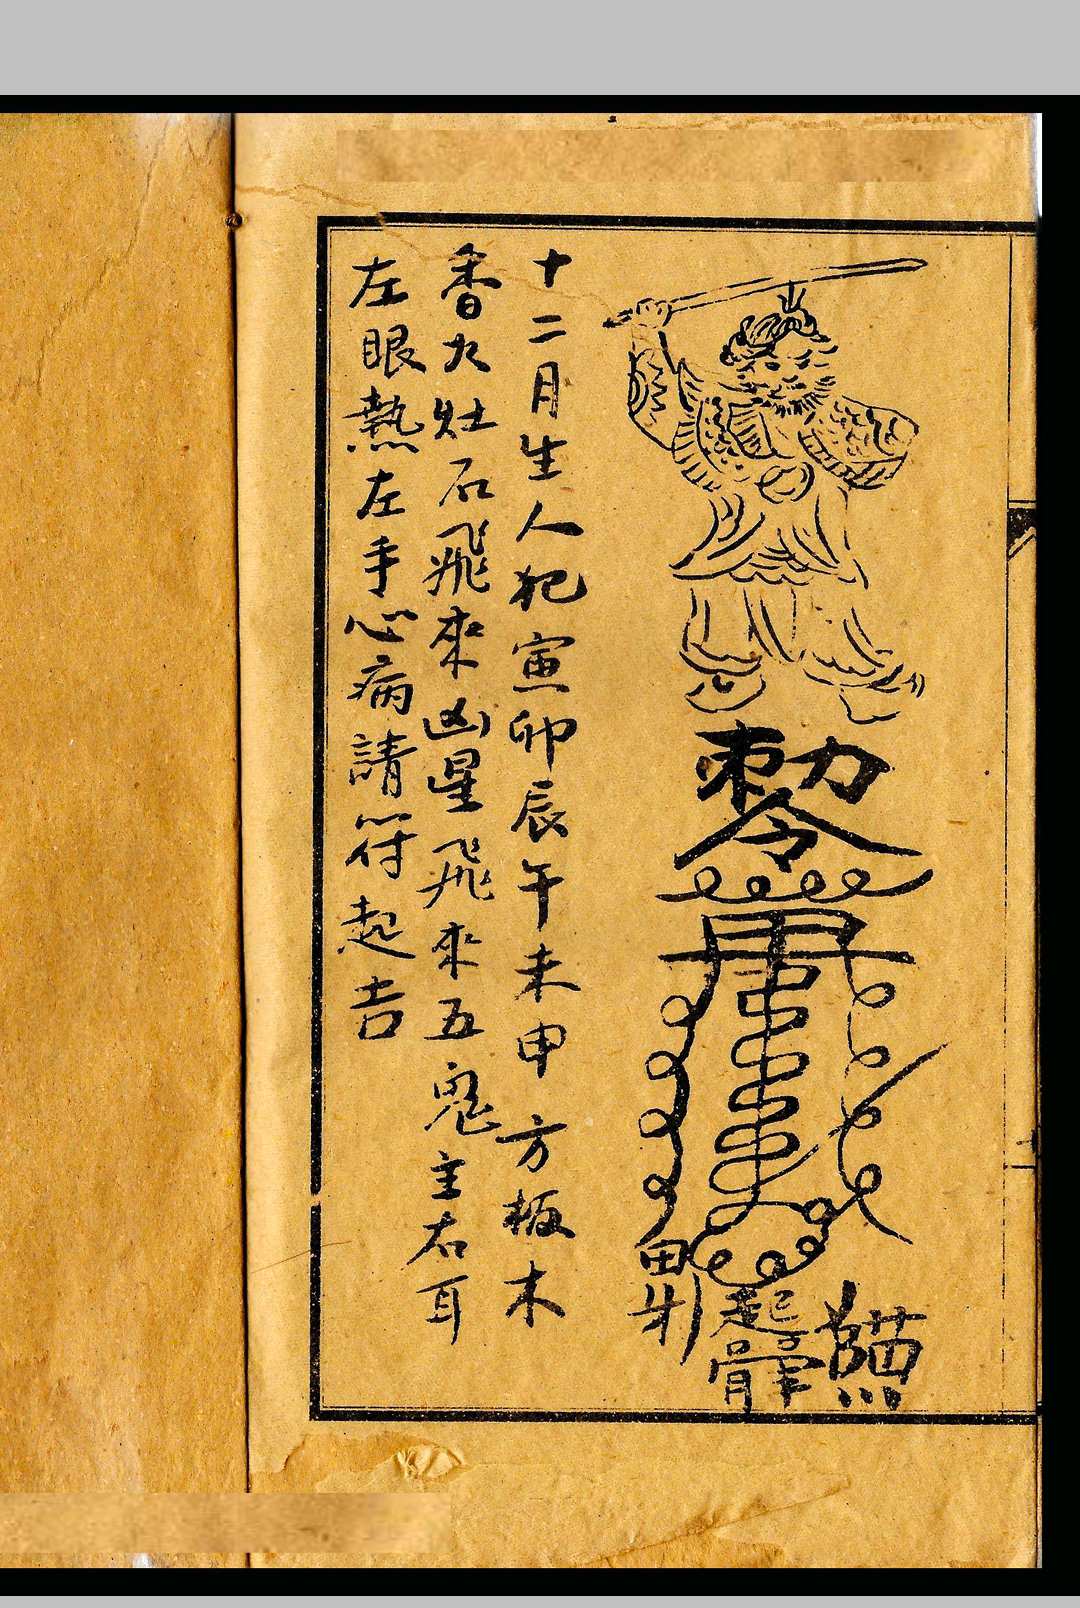 十二月生人犯寅卯辰午未申方板木
香火灶石飛來凶星飛來五鬼主右耳
左眼熱左手心病請符起吉
敕令
田
起